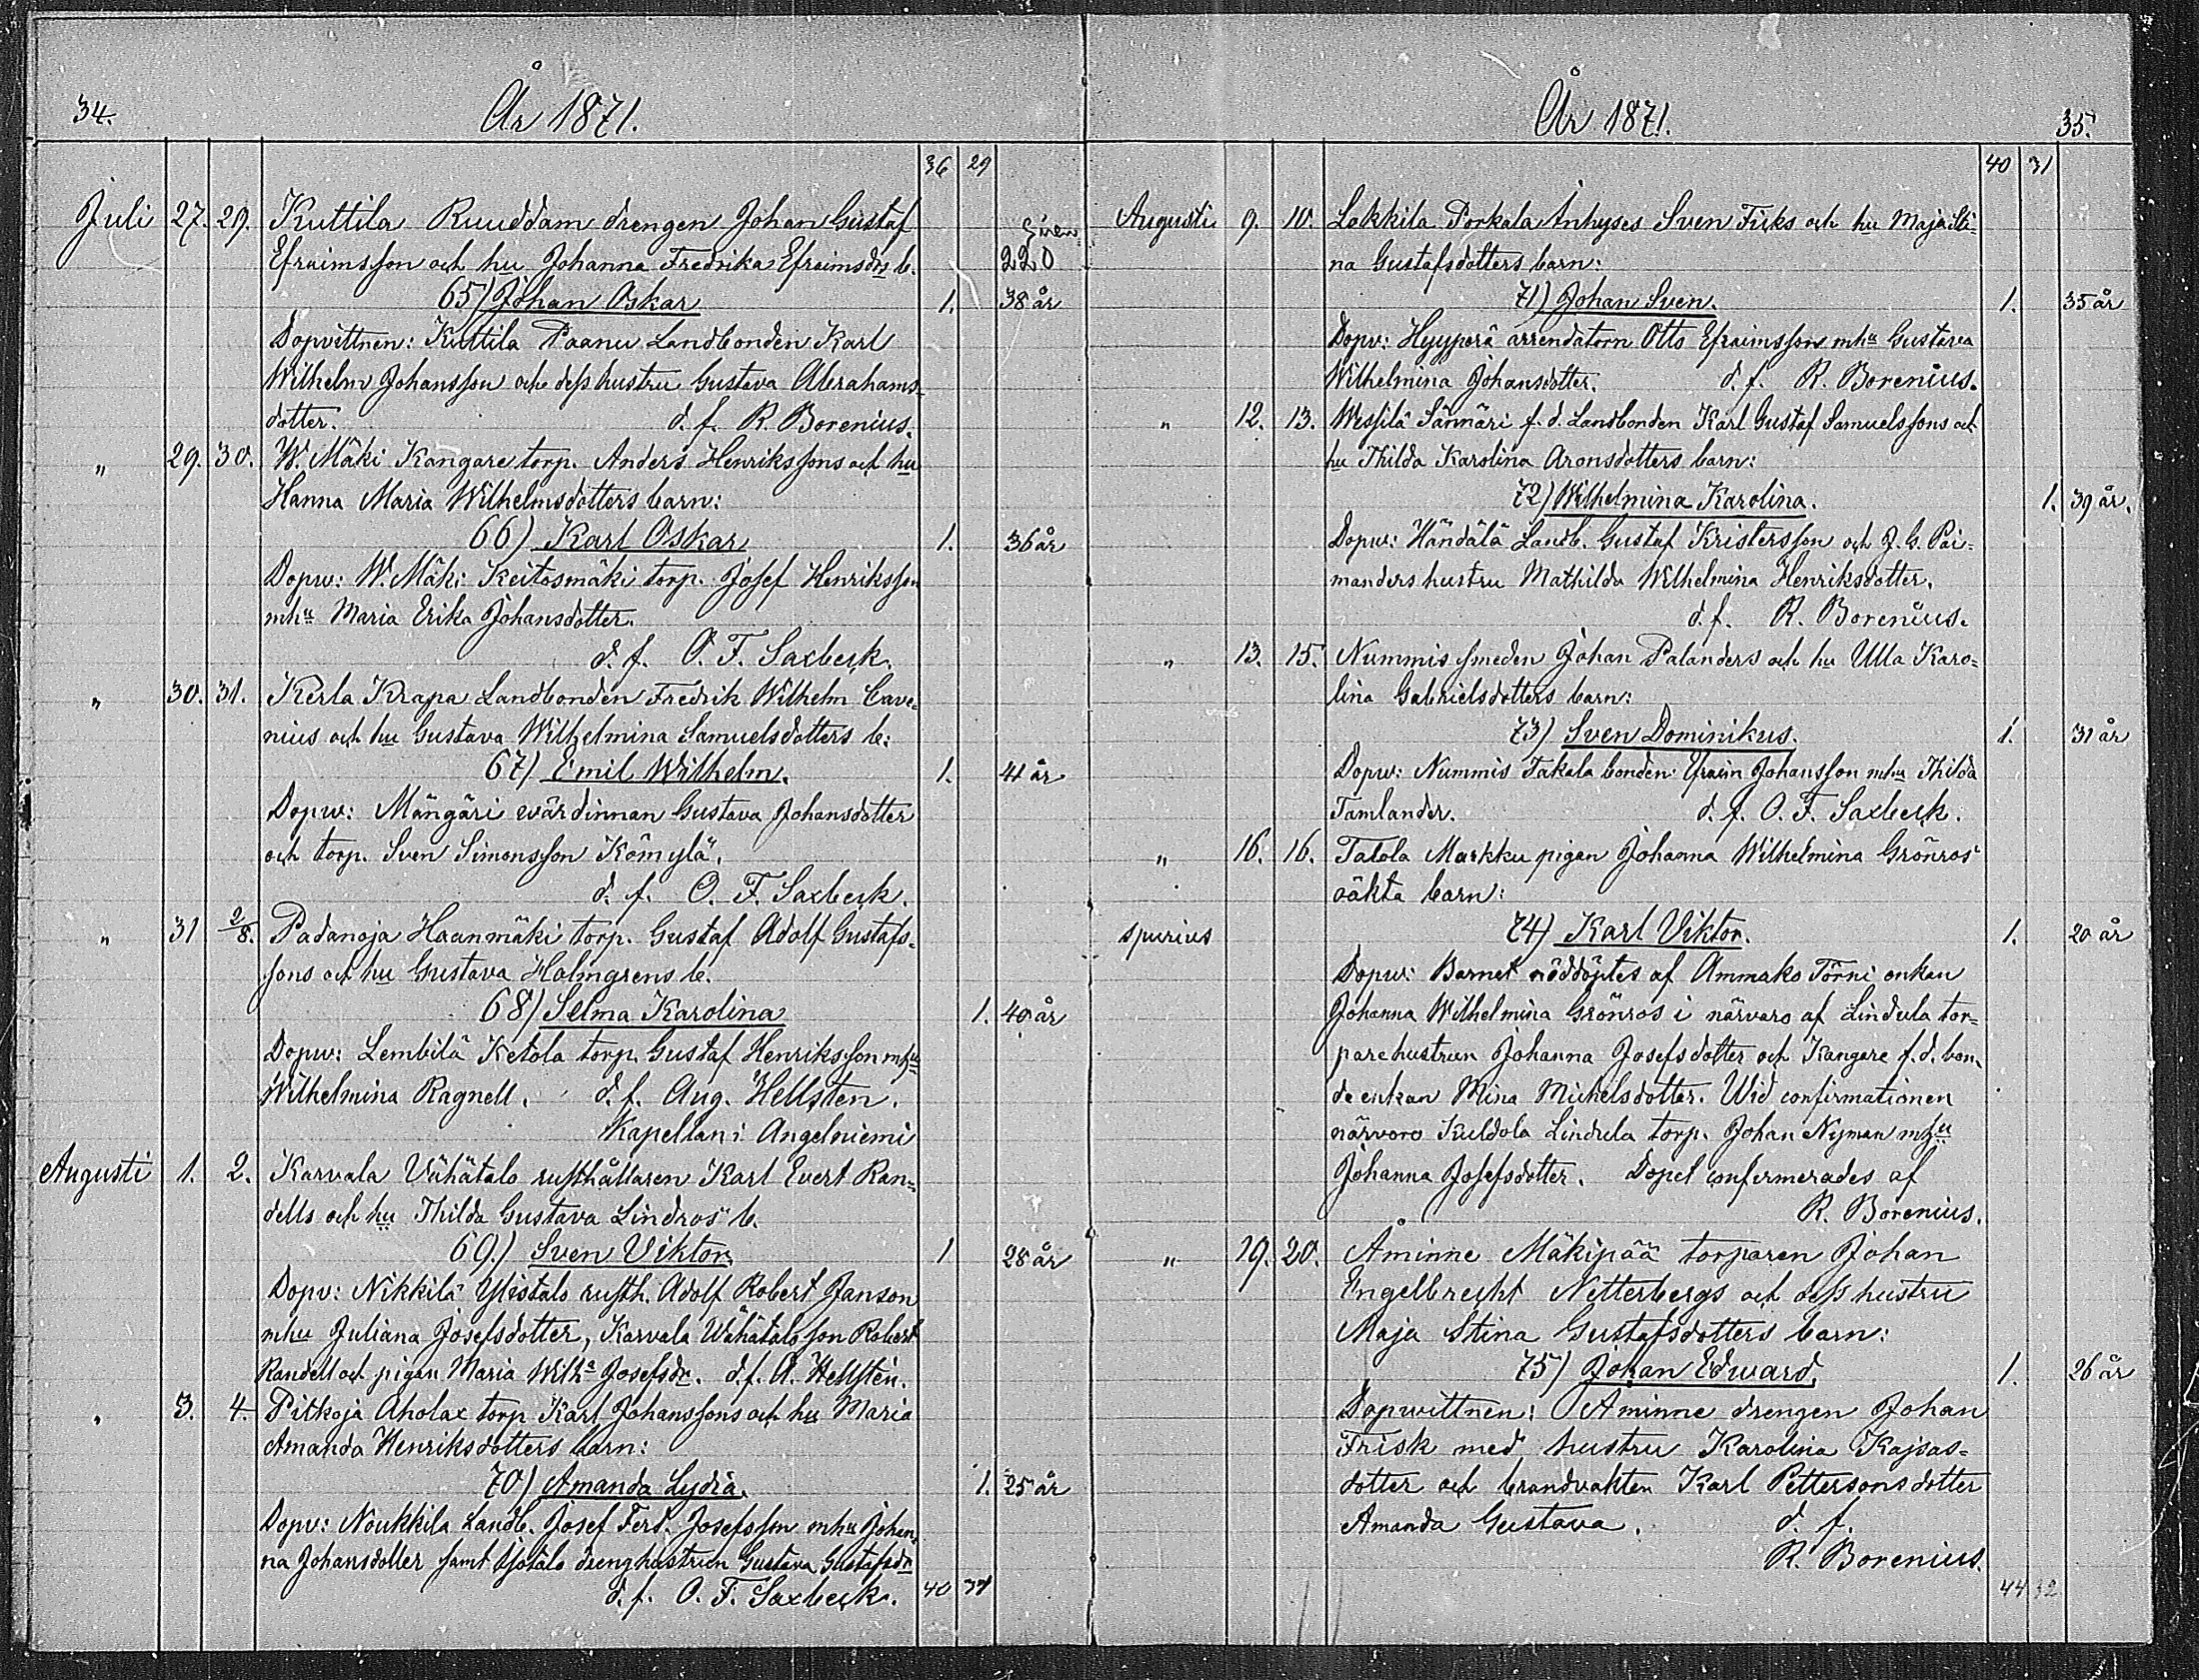 34.
År 1871.
36 29
Juli 27. 29. Kuttila Ruuddam drengen Johan Gustaf
Efraimsson och hu Johanna Fredrika Efraimsdrs b. 220
65) Johan Oskar 1. 38 år
Dopvittnen: Kuttila Paanu Landbonden Karl
Wilhelm Johansson och dess hustru Gustava Abrahams-
dotter. d. f. R. Borenius.
" 29. 30. W. Mäki Kangare torp. Anders Henrikssons och hu
Hanna Maria Wilhelmsdotters barn:
66) Karl Oskar 1. 36 år
Dopw: W. Mäki Keitosmäki torp. Josef Henriksson
mhu Maria Erika Johansdotter.
d. f. O. F. Saxbeck.
" 30. 31. Kerla Krapa Landbonden Fredrik Wilhelm Cave-
nius och hu Gustava Wilhelmina Samuelsdotters b:
67) Emil Wilhelm. 1. 41 år
Dopw: Mängäri värdinnan Gustava Johansdotter
och torp. Sven Simonsson Kömylä.
d. f. O. F. Saxbeck.
" 31 2/8. Padanoja Haanmäki torp. Gustaf Adolf Gustafs-
sons och hu Gustava Holmgrens b.
68) Selma Karolina 1. 40 år
Dopw: Lembilä Ketola torp. Gustaf Henriksson mhu
Wilhelmina Ragnell. d. f. Aug. Hellsten.
Kapellan i Angelniemi
Augusti 1. 2. Karvala Vähätalo rusthållaren Karl Evert Ran-
dells och hu Thilda Gustava Lindros b.
69.) Sven Viktor 1 28 år
Dopv: Nikkilä Ylistalo rusth. Adolf Robert Janson
mhu Juliana Josefsdotter, Karvala Wähätalo son Robert
Randell och pigan Maria Wilha Josefsdr. d. f. A. Hellsten.
" 3. 4. Pitkoja Aholax torp Karl Johanssons och hu Maria
Amanda Henriksdotters barn:
70) Amanda Lydia. 1. 25 år
Dopv: Noukkila Landb. Josef Ferd. Josefsson mhu Johan-
na Johansdotter samt Isotalo drenghustrun Gustava Gustafsdr
d. f. O. F. Saxbeck. 40 31
År 1871.
35.
40 31
Augusti 9. 10. Lokkila Porkala Inhyses Sven Fisks och hu Maja Sti-
na Gustafsdotters barn:
71) Johan Sven. 1. 35 år
Dopw: Hyyperä arrendatorn Otto Efraimsson mhu Gustava
Wilhelmina Johansdotter. d. f. R. Borenius.
" 12. 13. Wessilä Sännäri f. d. Landbonden Karl Gustaf Samuelssons och
hu Thilda Karolina Aronsdotters barn:
72) Wilhelmina Karolina. 1. 39 år.
Dopw: Händälä Landb. Gustaf Kristersson och J. G. Pai-
manders hustru Mathilda Wilhelmina Henriksdotter.
d. f. R. Borenius.
" 13. 15. Nummis smeden Johan Palanders och hu Ulla Karo-
lina Gabrielsdotters barn:
73) Sven Dominikus. 1. 31 år
Dopw: Nummis Takala bonden Efraim Johansson mhu Thilda
Tamlander. d. f. O. F. Saxbeck.
" 16. 16. Talola Markku pigan Johanna Wilhelmina Grönros
oäkta barn:
spurius 74) Karl Viktor. 1. 20 år
Dopw: Barnet nöddöptes af Ammako Törni enkan
Johanna Wilhelmina Grönros i närvaro af Lindula tor-
parehustrun Johanna Josefsdotter och Kangare f. d. bon-
de enkan Mina Michelsdotter. Wid confirmationen
närvoro Kuldola Lindula torp. Johan Nyman mhu
Johanna Josefsdotter. Dopet confirmerades af
R. Borenius.
" 19. 20. Åminne Mäkipää torparen Johan
Engelbrecht Netterbergs och dess hustru
Maja Stina Gustafsdotters barn:
75) Johan Edward. 1. 26 år
Dopwittnen: Åminne drengen Johan
Frisk med hustru Karolina Kajsas-
dotter och brandvakten Karl Pettersons dotter
Amanda Gustava. d. f.
R. Borenius.
44 32